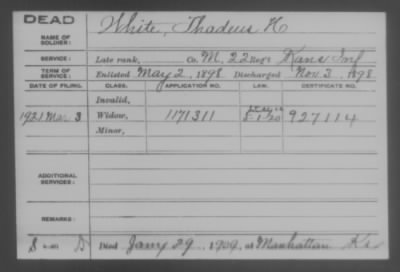 DEAD
NAME OF SOLDIER: White, Thadeus H
SERVICE: Late rank, Co. M, 22 Reg't Kans Inf
TERM OF SERVICE: Enlisted May 2, 1898. Discharged Nov. 3, 1898
DATE OF FILING. CLASS. APPLICATION NO. LAW. CERTIFICATE NO.
Invalid,
1921 Mar 3 Widow, 1171311 5-1-20 927114
Minor,
ADDITIONAL SERVICES:
REMARKS:
S D Died Jany 29, 1909, at Manhattan Ks